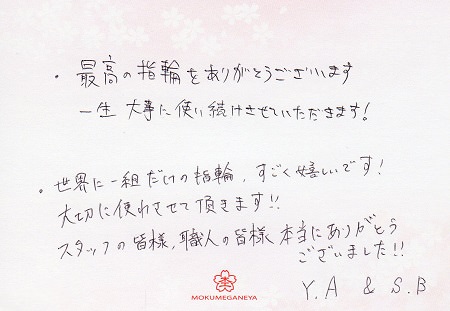 ・最高の指輪をありがとうございます
一生大事に使い続けさせていただきます!
・世界に一組だけの指輪、すごく嬉しいです!
大切に使わさせて頂きます!!
スタッフの皆様、職人の皆様 本当にありがとう
ございました!!
Y.A & S.B
MOKUMEGANEYA